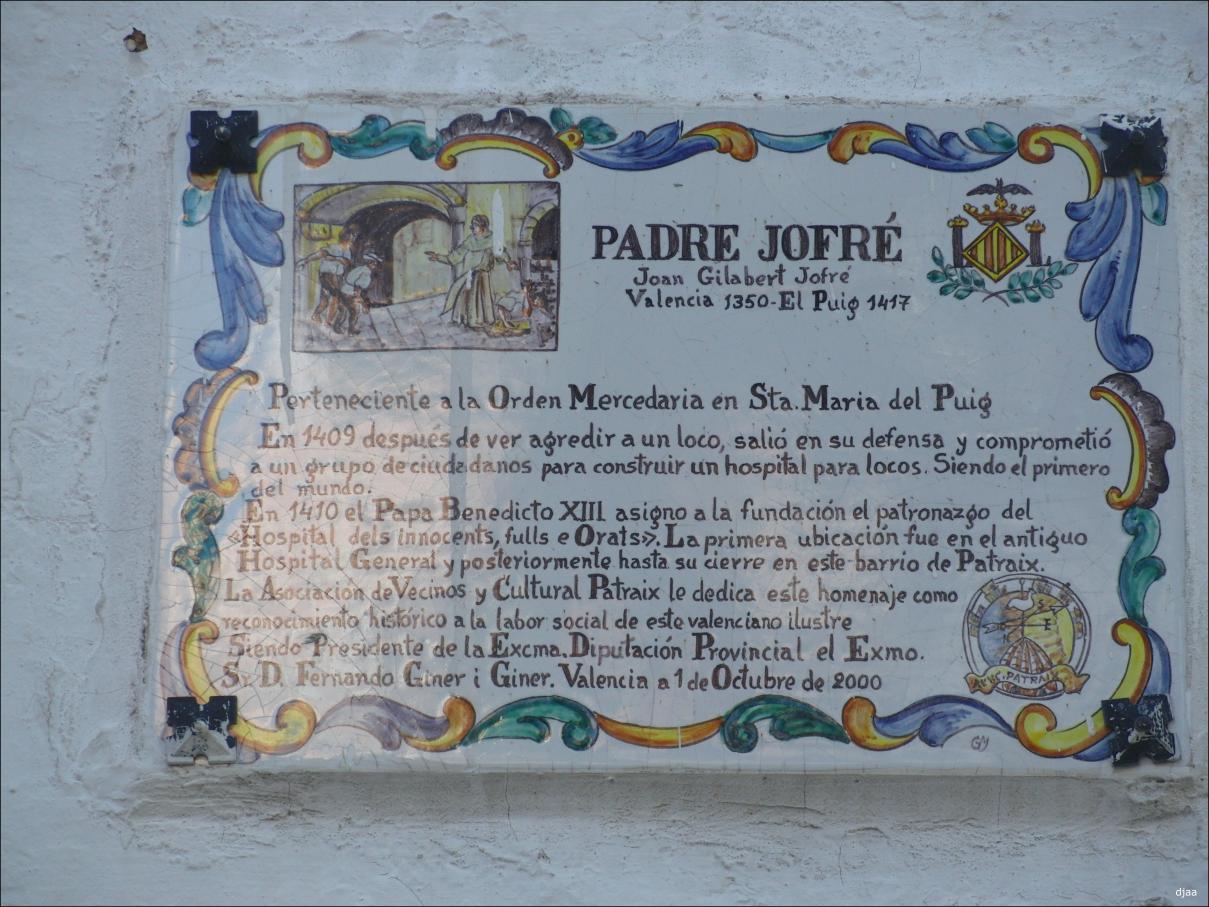 PADRE JOFRÉ
Joan Gilabert Jofré
Valencia 1350-El Puig 1417
Perteneciente a la Orden Mercedaria en Sta. Maria del Puig
En 1409 después de ver agredir a un loco, salió en su defensa y comprometió
a un grupo de ciudadanos para construir un hospital para locos. Siendo el primero
del mundo.
En 1410 el Papa Benedicto XIII asigno a la fundación el patronazgo del
«Hospital dels innocents, fulls e Orats». La primera ubicación fue en el antiguo
Hospital General y posteriormente hasta su cierre en este barrio de Patraix.
La Asociación de Vecinos y Cultural Patraix le dedica este homenaje como
reconocimiento histórico a la labor social de este valenciano ilustre
Siendo Presidente de la Excma. Diputación Provincial el Exmo.
Sr. D. Fernando Giner i Giner. Valencia a 1 de Octubre de 2000
PATRAIX
GM
djaa